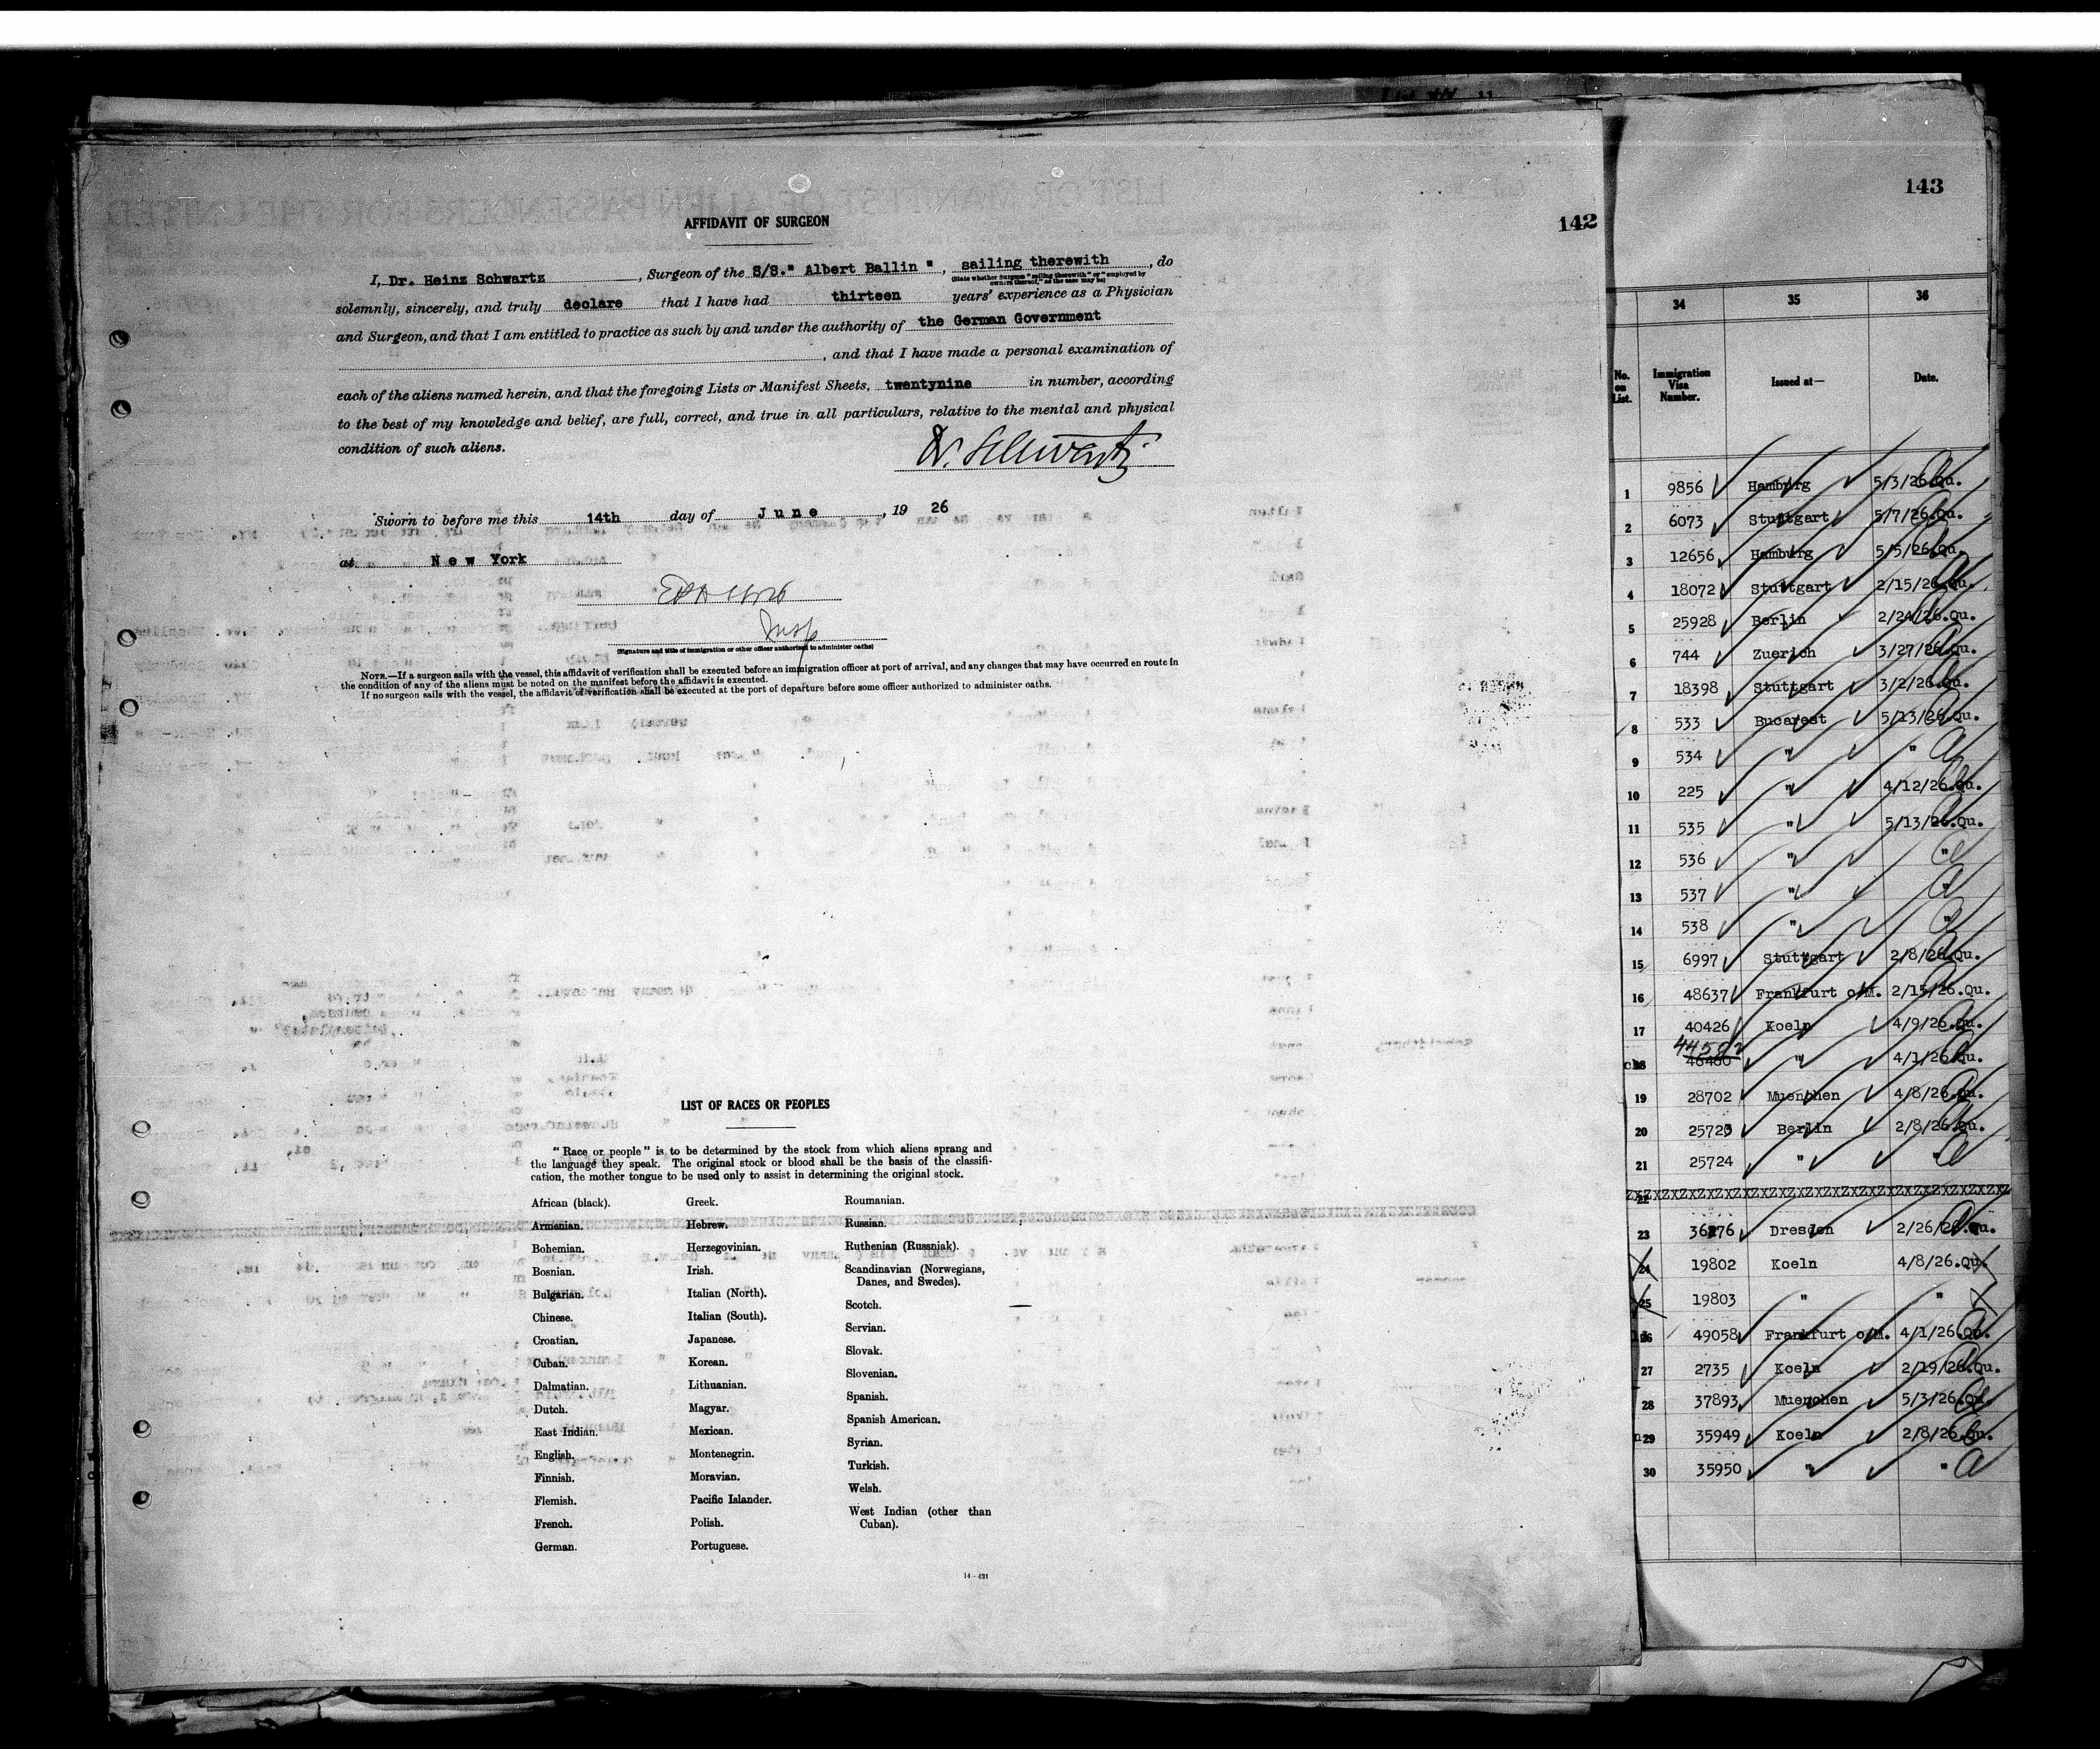 142
AFFIDAVIT OF SURGEON
I, Dr. Heinz Schwartz, Surgeon of the S/S." Albert Ballin ", sailing therewith, do
(State whether Surgeon "sailing therewith" or "employed by
owners thereof," as the case may be)
solemnly, sincerely, and truly declare that I have had thirteen years' experience as a Physician
and Surgeon, and that I am entitled to practice as such by and under the authority of the German Government
, and that I have made a personal examination of
each of the aliens named herein, and that the foregoing Lists or Manifest Sheets, twentynine in number, according
to the best of my knowledge and belief, are full, correct, and true in all particulars, relative to the mental and physical
condition of such aliens.
Dr. Schwartz
Sworn to before me this 14th day of June, 19 26
at New York
Insp
(Signature and title of immigration or other officer authorized to administer oaths)
NOTE.—If a surgeon sails with the vessel, this affidavit of verification shall be executed before an immigration officer at port of arrival, and any changes that may have occurred en route in
the condition of any of the aliens must be noted on the manifest before the affidavit is executed.
If no surgeon sails with the vessel, the affidavit of verification shall be executed at the port of departure before some officer authorized to administer oaths.
LIST OF RACES OR PEOPLES
"Race or people" is to be determined by the stock from which aliens sprang and
the language they speak. The original stock or blood shall be the basis of the classifi-
cation, the mother tongue to be used only to assist in determining the original stock.
African (black).
Armenian.
Bohemian.
Bosnian.
Bulgarian.
Chinese.
Croatian.
Cuban.
Dalmatian.
Dutch.
East Indian.
English.
Finnish.
Flemish.
French.
German.
Greek.
Hebrew.
Herzegovinian.
Irish.
Italian (North).
Italian (South).
Japanese.
Korean.
Lithuanian.
Magyar.
Mexican.
Montenegrin.
Moravian.
Pacific Islander.
Polish.
Portuguese.
Roumanian.
Russian.
Ruthenian (Russniak).
Scandinavian (Norwegians,
Danes, and Swedes).
Scotch.
Servian.
Slovak.
Slovenian.
Spanish.
Spanish American.
Syrian.
Turkish.
Welsh.
West Indian (other than
Cuban).
14—431
143
34 35 36
No. on List. Immigration Visa Number. Issued at— Date.
1 9856 Hamburg 5/3/26.Qu.
2 6073 Stuttgart 5/7/26.Qu.
3 12656 Hamburg 5/5/26.Qu.
4 18072 Stuttgart 2/15/26.Qu.
5 25928 Berlin 2/24/26.Qu.
6 744 Zuerich 3/27/26.Qu.
7 18398 Stuttgart 3/2/26.Qu.
8 533 Bucarest 5/13/26.Qu.
9 534 " "
10 225 " 4/12/26.Qu.
11 535 " 5/13/26.Qu.
12 536 " "
13 537 " "
14 538 " "
15 6997 Stuttgart 2/8/26.Qu.
16 48637 Frankfurt o/M. 2/15/26.Qu.
17 40426 Koeln 4/9/26.Qu.
18 " 4/1/26.Qu.
19 28702 Muenchen 4/8/26.Qu.
20 25723 Berlin 2/8/26.Qu.
21 25724 " "
22
23 36276 Dresden 2/26/26.Qu.
24 19802 Koeln 4/8/26.Qu.
25 19803 " "
26 49058 Frankfurt o/M. 4/1/26.Qu.
27 2735 Koeln 2/19/26.Qu.
28 37893 Muenchen 5/3/26.Qu.
29 35949 Koeln 2/8/26.Qu.
30 35950 " "